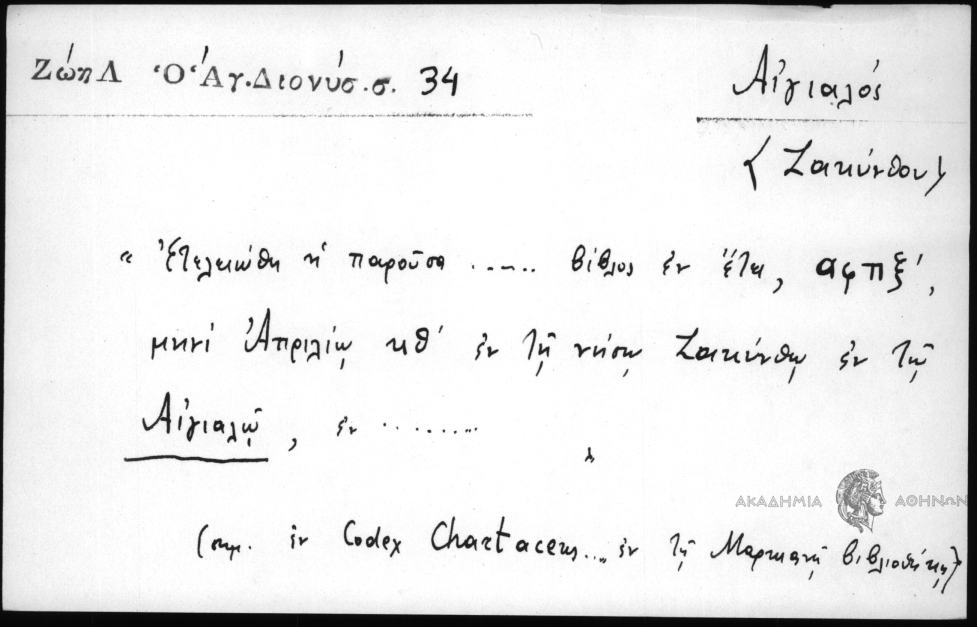 Ζώη Λ Ὁ Ἁγ. Διονύσ. σ. 34
Αἰγιαλός
(Ζακύνθου)
« Ἐτελειώθη ἡ παροῦσα ...... βίβλος ἐν ἔτει, αφπξ',
μηνὶ Ἀπριλίῳ κθ' ἐν τῇ νήσῳ Ζακύνθῳ ἐν τῷ
Αἰγιαλῷ, ἐν ......... »
ΑΚΑΔΗΜΙΑ ΑΘΗΝΩΝ
(σημ. ἐν Codex Chartaceus ... ἐν τῇ Μαρκιανῇ βιβλιοθήκῃ)